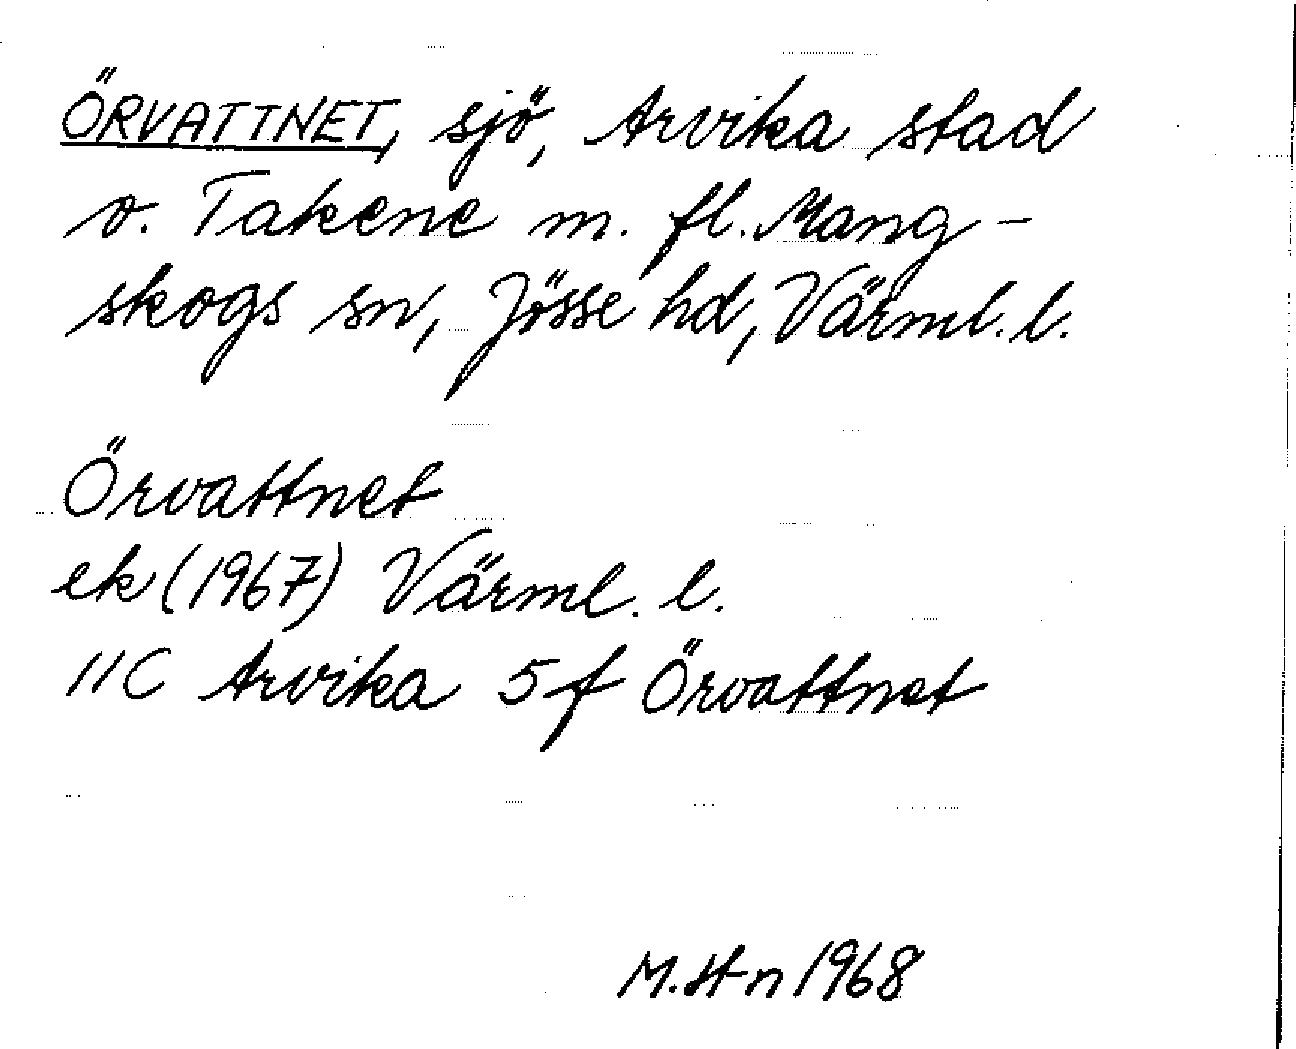 ÖRVATTNET, sjö, Arvika stad
o. Takene m. fl. Mang-
skogs sn, Jösse hd, Värml. l.
Örvattnet
ek (1967) Värml. l.
11C Arvika 5f Örvattnet
M. H-n 1968